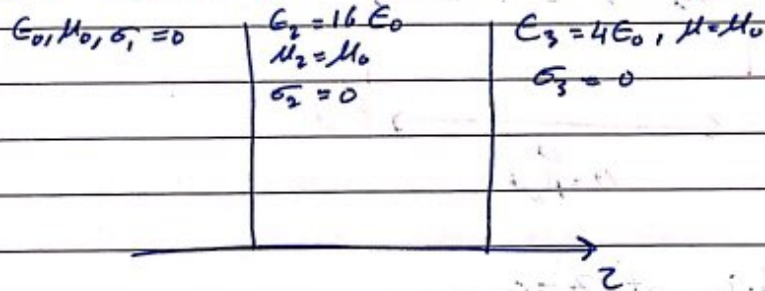 ϵ₀, μ₀, σ₁ = 0
ϵ₂ = 16 ϵ₀
μ₂ = μ₀
σ₂ = 0
ϵ₃ = 4ϵ₀, μ = μ₀
σ₃ = 0
z